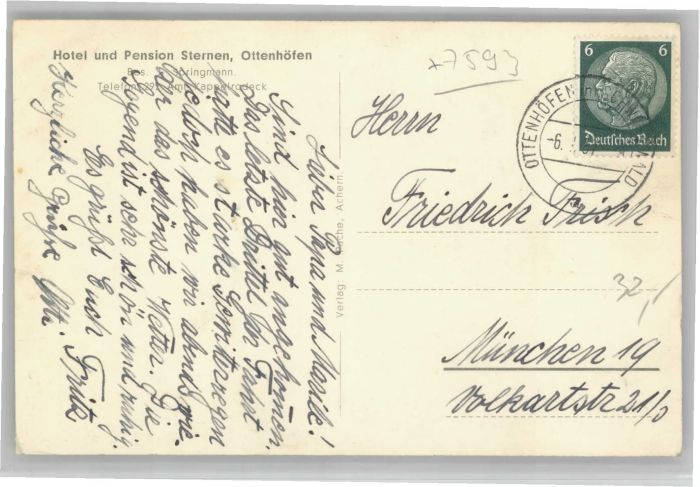 Hotel und Pension Sternen, Ottenhöfen
Bes. Springmann.
Telefon 292 Amt Kappelrodeck
Lieber Papa und
Sind hier gut angekommen.
Das letzte Drittel der Fahrt
hatte es starke Gewitterregen
jedoch haben wir abends wie-
der das schönste Wetter. Die
Gegend ist sehr schön und ruhig.
Es grüßt Euch Fritz
Herzliche Grüße
Verlag M. Achern.
*7593
6 6
Deutsches Reich
OTTENHÖFEN SCHWARZWALD
-6.
Herrn
Friedrich Frisch
32,/
München 19
Volkartstr 21/3